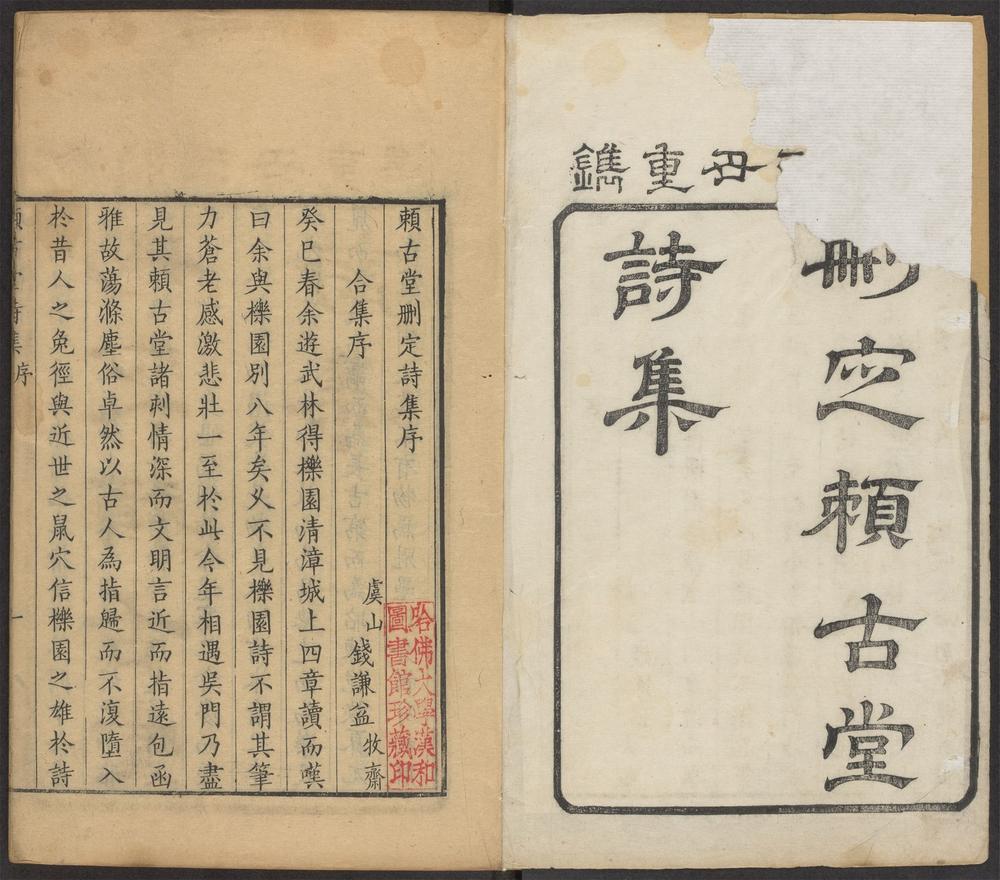 丑重鐫
刪定賴古堂
詩集
賴古堂刪定詩集序
合集序
虞山錢謙益牧齋
癸巳春余遊武林得櫟園清漳城上四章讀而嘆
曰余與櫟園別八年矣又不見櫟園詩不謂其筆
力蒼老感激悲壯一至於此今年相遇吳門乃盡
見其賴古堂諸刺情深而文明言近而指遠包函
雅故蕩滌塵俗卓然以古人為指歸而不復墮入
於昔人之兔徑與近世之鼠穴信櫟園之雄於詩
賴古堂詩集
序
一
哈佛大學漢和
圖書館珍藏印